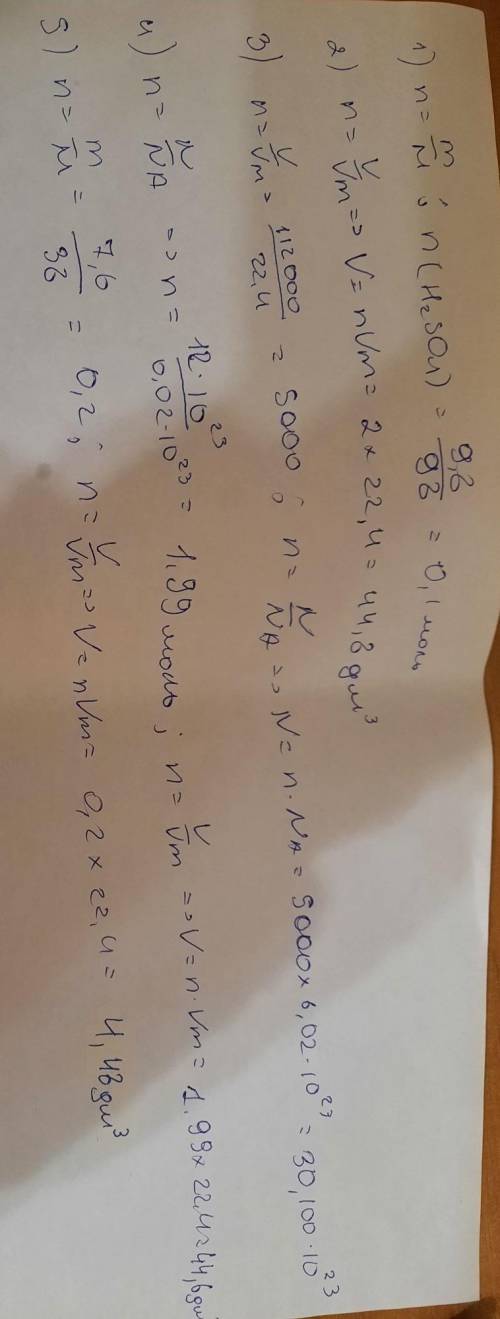 1) n = m/M ; n(H₂SO₄) = 9,8/98 = 0,1 моль
2) n = V/Vm => V = nVm = 2 × 22,4 = 44,8 дм³
3) n = V/Vm = 112000/22,4 = 5000 ; n = N/NA => N = n · NA = 5000 × 6,02 · 10²³ = 30,100 · 10²³
4) n = N/NA => n = 12 · 10²³/6,02 · 10²³ = 1.99 моль ; n = V/Vm => V = n · Vm = 1.99 × 22,4 = 44,6 дм³
5) n = m/M = 7,6/38 = 0,2 ; n = V/Vm => V = nVm = 0,2 × 22,4 = 4,48 дм³